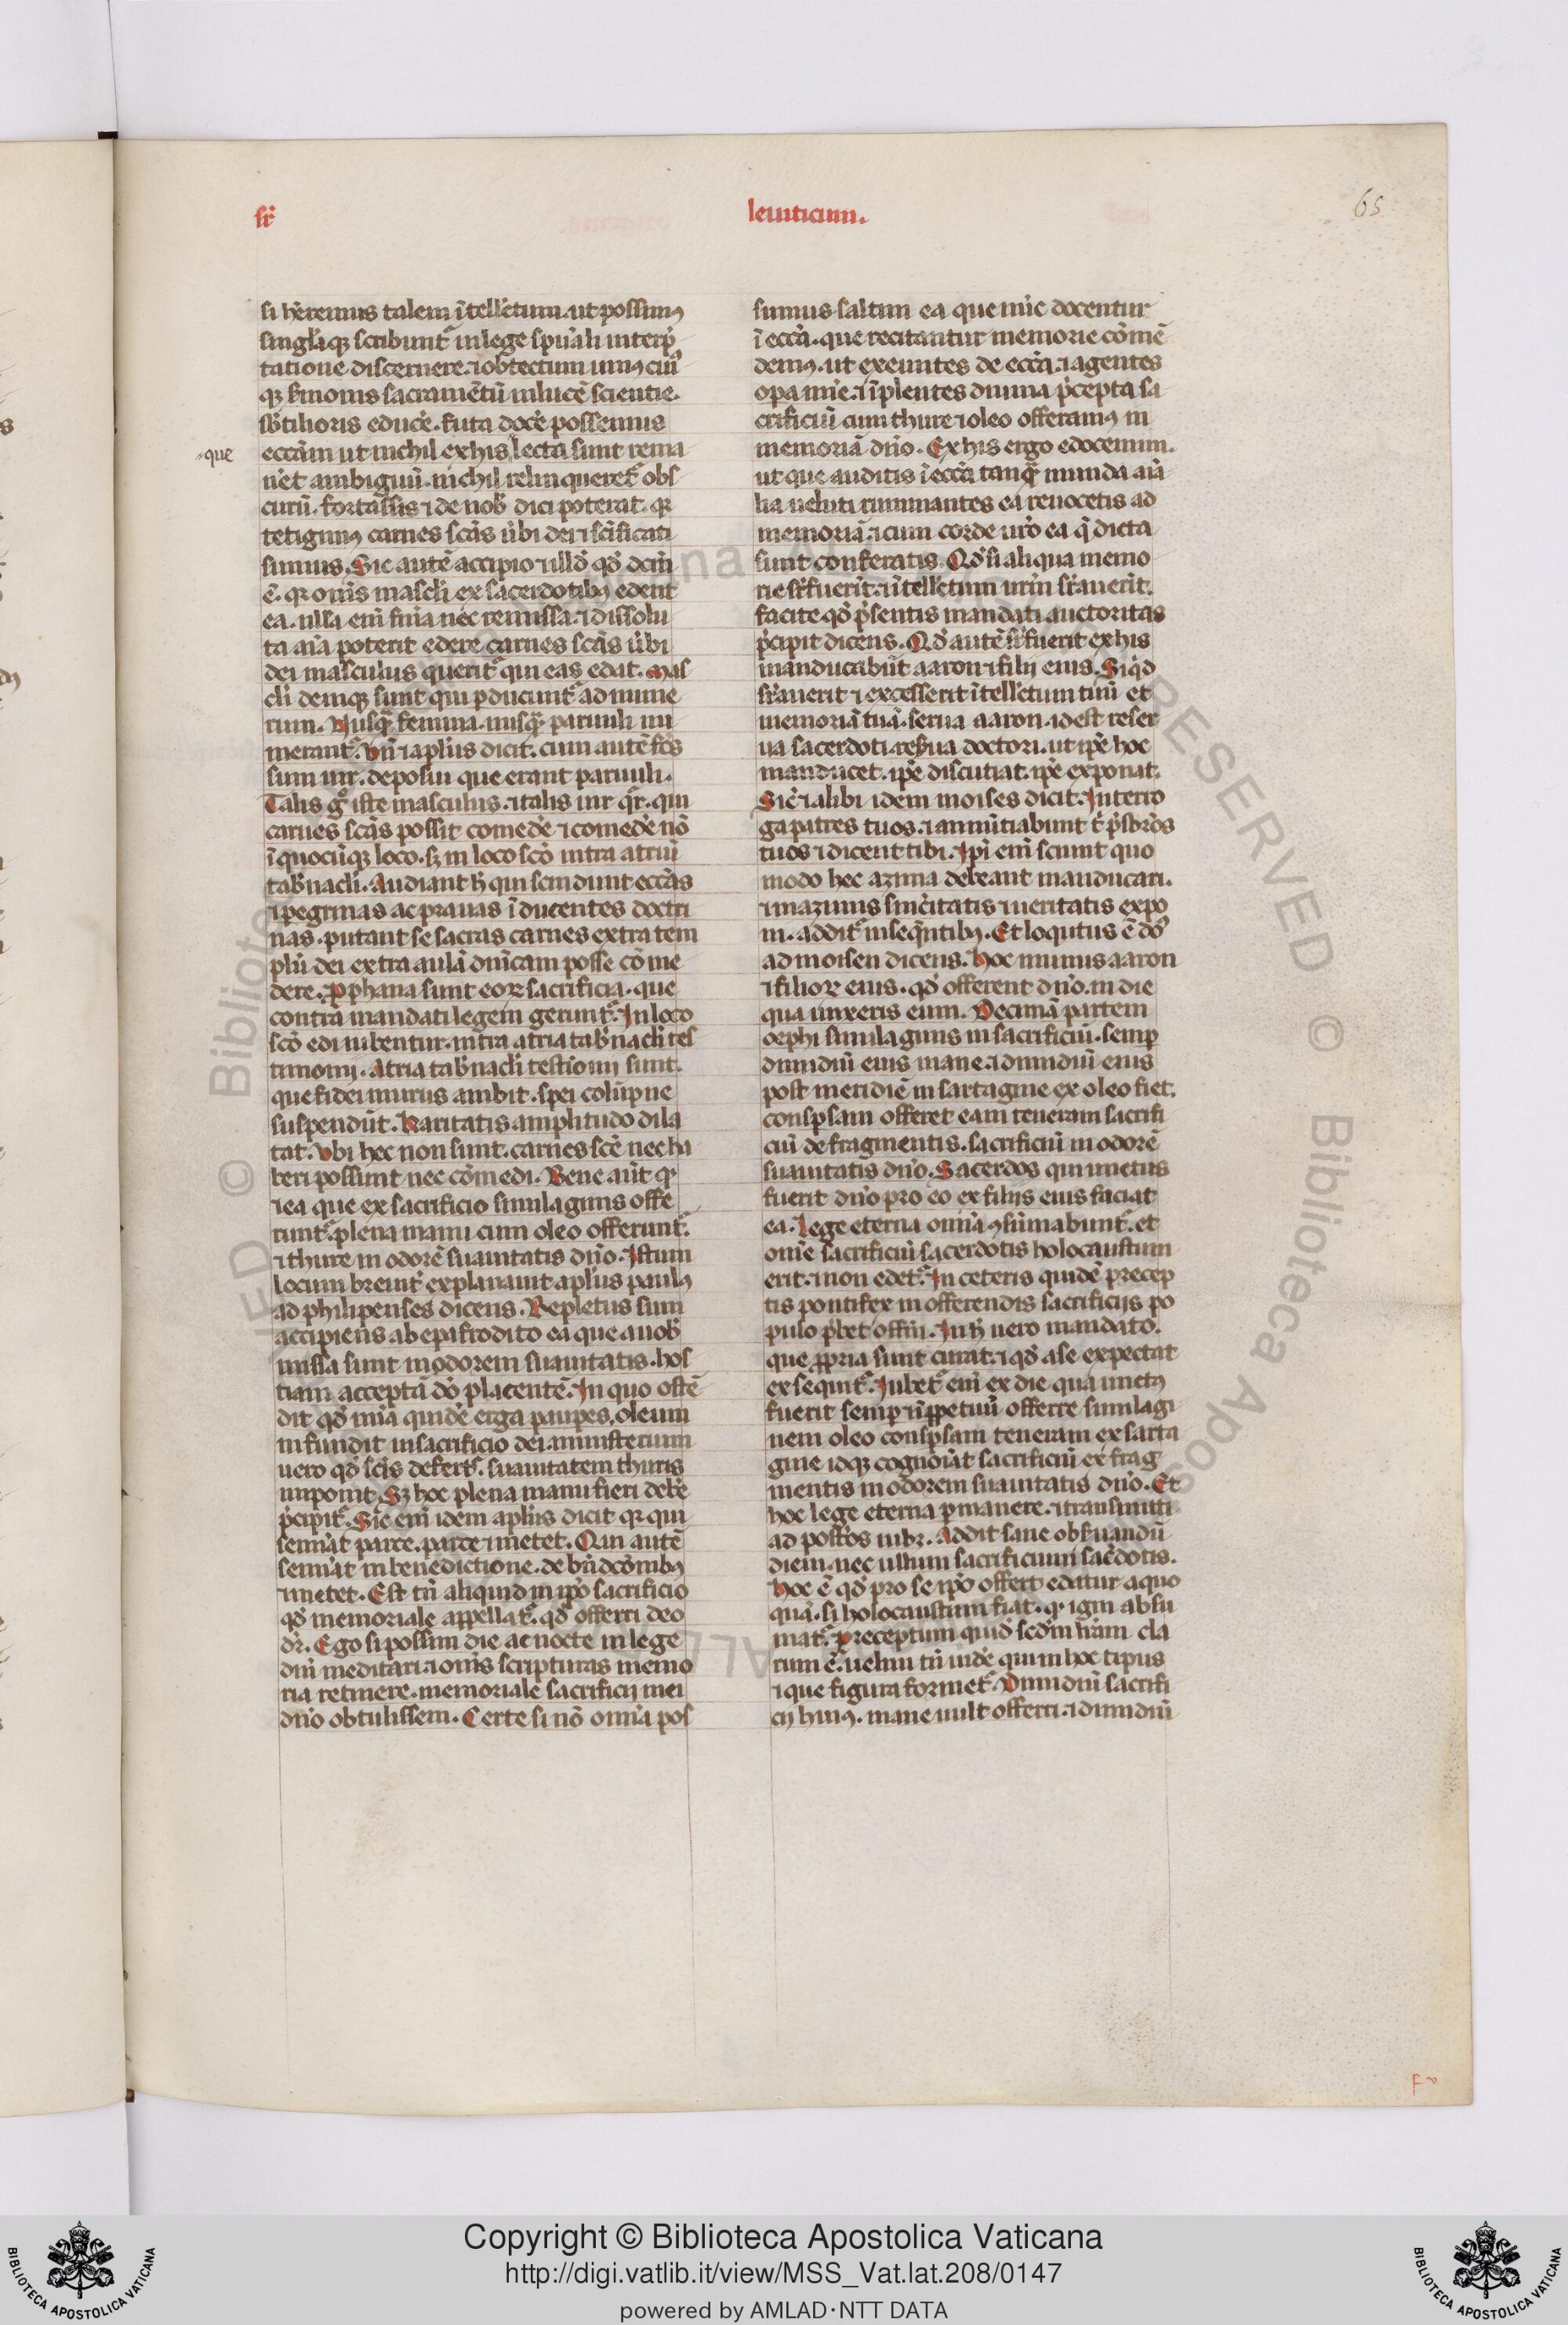 sr̄
leuiticum.
65
si heremus talem ītellectum. ut possimꝰ
singl̄a qꝫ scribuntᷣ in lege spūali interp̄
tatione discernere. ⁊ obtectum uniꝰ cuiꝰ
qꝫ s̄monis sacramētū in lucē scientie.
sb̄tilioris educe. s̄ ita doce possemus
ecc̄am ut nichil ex his lecta sunt rema
-que
net ambiguū. nichil relinqueretᷣ obs
curū. fortassis ⁊ de nob̄ dici poterat. qꝛ
tetigimꝰ carnes sc̄as ūbi dei ⁊ sc̄ificati
sumus. Sic autē accipio ⁊ illō qd̄ dc̄m
ē. qꝛ om̄is masclī ex sacerdotibꝰ edent
ea. ulla enī femīa nec remissa. ⁊ dissolu
ta aīa poterit edere carnes sc̄as ūbi
dei masculus queritᷣ qui eas edat. Mas
cli deniqꝫ sunt qui pducuntᷣ ad nume
rum. Nusq̄ femina. nusq̄ paruuli nu
merantᷣ. Vn̄ ⁊ apl̄us dicit. cum autē fc̄s
sum uir. deposui que erant paruuli.
Talis gͦ iste masculus. ⁊ talis uir qr̄. qui
carnes sc̄as possit comede ⁊ comede nō
ī quocūqꝫ loco. sꝫ in loco sc̄o intra atriū
tab̄nacli. Audiant h̄ qui scindunt ecc̄as
⁊ pegrinas ac prauas īducentes doctri
nas. putant se sacras carnes extra tem
plū dei extra aulā dn̄icam posse cōme
dere. pphana sunt eoꝝ sacrificia. que
contra mandati legem geruntᷣ. In loco
sc̄o edi iubentur. intra atria tab̄nacli tes
timonij. Atria tab̄nacli testimonij sunt.
que fidei murus ambit. spei colūpne
suspendūt. Karitatis amplitudo dila
tat. Vbi hec non sunt. carnes sc̄e nec ha
beri possunt nec cōmedi. Bene aūt qꝛ
⁊ ea que ex sacrificio similaginis offe
runtᷣ. plena manu cum oleo offeruntᷣ.
⁊ thure in odorē suauitatis dn̄o. Istum
locum breuit̄ explanauit apl̄us paulꝰ
ad philipenses dicens. Repletus sum
accipiens ab epafrodito ea que a uob̄
missa sunt in odorem suauitatis. hos
tiam acceptā dō placentē. In quo ostē
dit qd̄ mīa quidē erga paupes, oleum
infundit in sacrificio dei. ministerium
uero qd̄ sc̄is defertᷣ. suauitatem thuris
imponit. Sꝫ hoc plena manu fieri debe
p̄cipitᷣ. Sic enī idem apl̄us dicit qꝛ qui
seminat parce. parce ⁊ metet. Qui autē
seminat in benedictione. de bn̄dcōnibꝰ
⁊ metet. Est tn̄ aliquid in ip̄o sacrificio
qd̄ memoriale appellatᷣ. qd̄ offerri deo
dr̄. Ego si possim die ac nocte in lege
dn̄i meditari. ⁊ om̄is scripturas memo
ria retinere. memoriale sacrificij mei
dn̄o obtulissem. Certe si nō omīa pos
sumus saltim ea que nūc docentur
ī ecc̄a. que recitantur memorie cōmē
demꝰ. ut exeuntes de ecc̄a. ⁊ agentes
opa mīe. ⁊ īplentes diuina p̄cepta sa
crificiū cum thure ⁊ oleo offeramꝰ in
memoriā dn̄o. Ex his ergo edocemini.
ut que auditis ī ecc̄a tanq̄ munda aīa
lia ueluti ruminantes ea reuocetis ad
memoriā. ⁊ cum corde uro ea q̄ dicta
sunt conferatis. Qd̄ si aliqua memo
rie sr̄fuerīt. ⁊ ītellectum urm̄ sr̄auerit.
facite qd̄ p̄sentis mandati auctoritas
p̄cipit dicens. Qd̄ autē sr̄fuerit ex his
manducabūt aaron ⁊ filij eius. Si qd̄
sr̄auerit ⁊ excesserit ītellectum tuū et
memoriā tuā. serua aaron. id est reser
ua sacerdoti. res̄ua doctori. ut ip̄e hoc
manducet. ip̄e discutiat. ip̄e exponat.
Sic ⁊ alibi idem moises dicit. Interro
ga patres tuos. ⁊ annūtiabunt t̄ p̄sbr̄os
tuos ⁊ dicent tibi. Ipī enī sciunt quo
modo hec azima debeant manducari.
⁊ in azimis sinc̄itatis ⁊ ueritatis expo
ni. additᷣ in seq̄ntibꝰ. Et loqutus ē dō
ad moisen dicens. Hoc munus aaron
⁊ filioꝝ eius. qd̄ offerent dn̄o. in die
qua unxeris eum. Decimā partem
oephi similaginis in sacrificiū. semp
dimidiū eius mane. ⁊ dimidiū eius
post meridiē in sartagine ex oleo fiet.
conspsam offeret eam teneram sacrifi
ciū de fragmentis. sacrificiū in odorē
suauitatis dn̄o. Sacerdos qui unctus
fuerit dn̄o pro eo ex filiis eius faciat
ea. Lege eterna omīa ꝯsūmabuntᷣ. et
om̄e sacrificiū sacerdotis holocaustum
erit. ⁊ non edetᷣ. In ceteris quidē precep
tis pontifex in offerendis sacrificijs po
pulo p̄bet offm̄. In h̄ uero mandato.
que ppria sunt curat. ⁊ qd̄ a se expectat
exsequitᷣ. Iubetᷣ enī ex die qua unctꝰ
fuerit semp ⁊ īppetuū offerre similagi
nem oleo conspsam teneram ex sarta
gine idqꝫ cognoīat sacrificiū ex frag
mentis in odorem suauitatis dn̄o. Et
hoc lege eterna pmanere. ⁊ transmitti
ad postōs iubꝫ. Addit sane obs̄uandū
diem. nec ullum sacrificium sac̄dotis.
Hoc ē qd̄ pro se ip̄o offert edatur a quo
quā. si holocaustum fiat. qꝛ igni absu
matᷣ. Preceptum quid sedm̄ lr̄am cla
rum ē. uelim tn̄ uide qui in hoc tipus
⁊ que figura formetᷣ. Dimidiū sacrifi
cij huiꝰ. mane uult offerri. ⁊ dimidiū
Copyright © Biblioteca Apostolica Vaticana
http://digi.vatlib.it/view/MSS_Vat.lat.208/0147
powered by AMLAD·NTT DATA